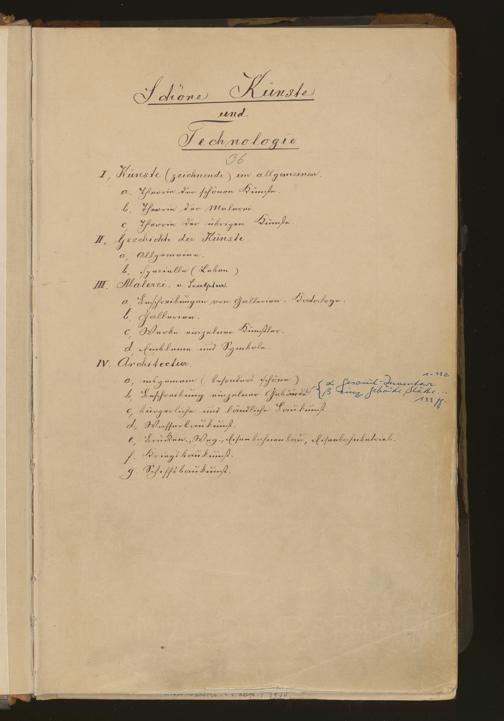 Schöne Künste
und
Technologie
06
I, Künste (zeichnende) im allgemeinen.
a. Theorie der schönen Künste.
b. Theorie der Malerei
c, Theorie der übrigen Künste
II. Geschichte der Künste
a, Allgemeine.
b. specielle (Leben)
III. Malerei. u. Sculptur
a. Beschreibungen von Gallerien. Kataloge.
b, Gallerien.
c, Werke einzelner Künstler.
d, Embleme und Symbole
IV. Architectur.
a, allgemein (besonders schöne)
b, Beschreibung einzelner Gebäude
α Gesamt-Inventare 1-132
β Gebäude, Städte 133 ff
c, bürgerliche und ländliche Baukunst
d, Wasserbaukunst.
e, Brücken-, Weg-, Eisenbahnenbau, Eisenbahnbetrieb.
f. Kriegsbaukunst.
g. Schiffsbaukunst.